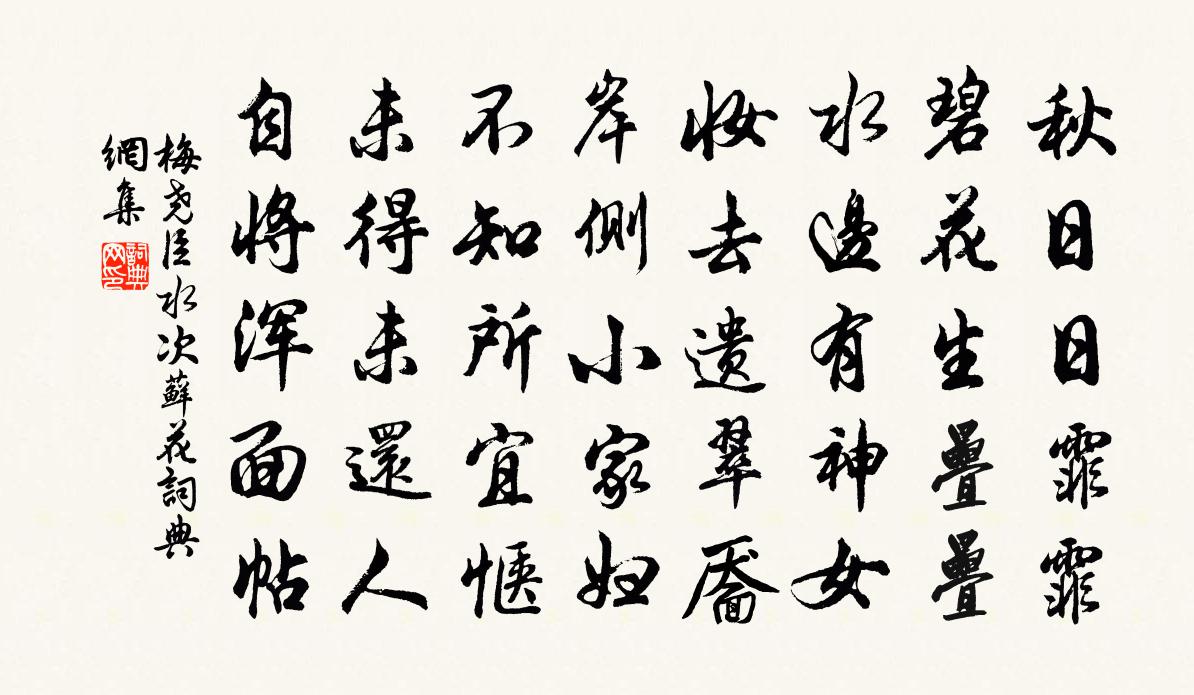 秋日日霏霏
碧花生疊疊
水邊有神女
妆去遗翠靥
岸侧小家妇
不知所宜惬
未得未還人
自将浑面帖
梅尧臣水次蘚花詞典
網集
詞典
网印